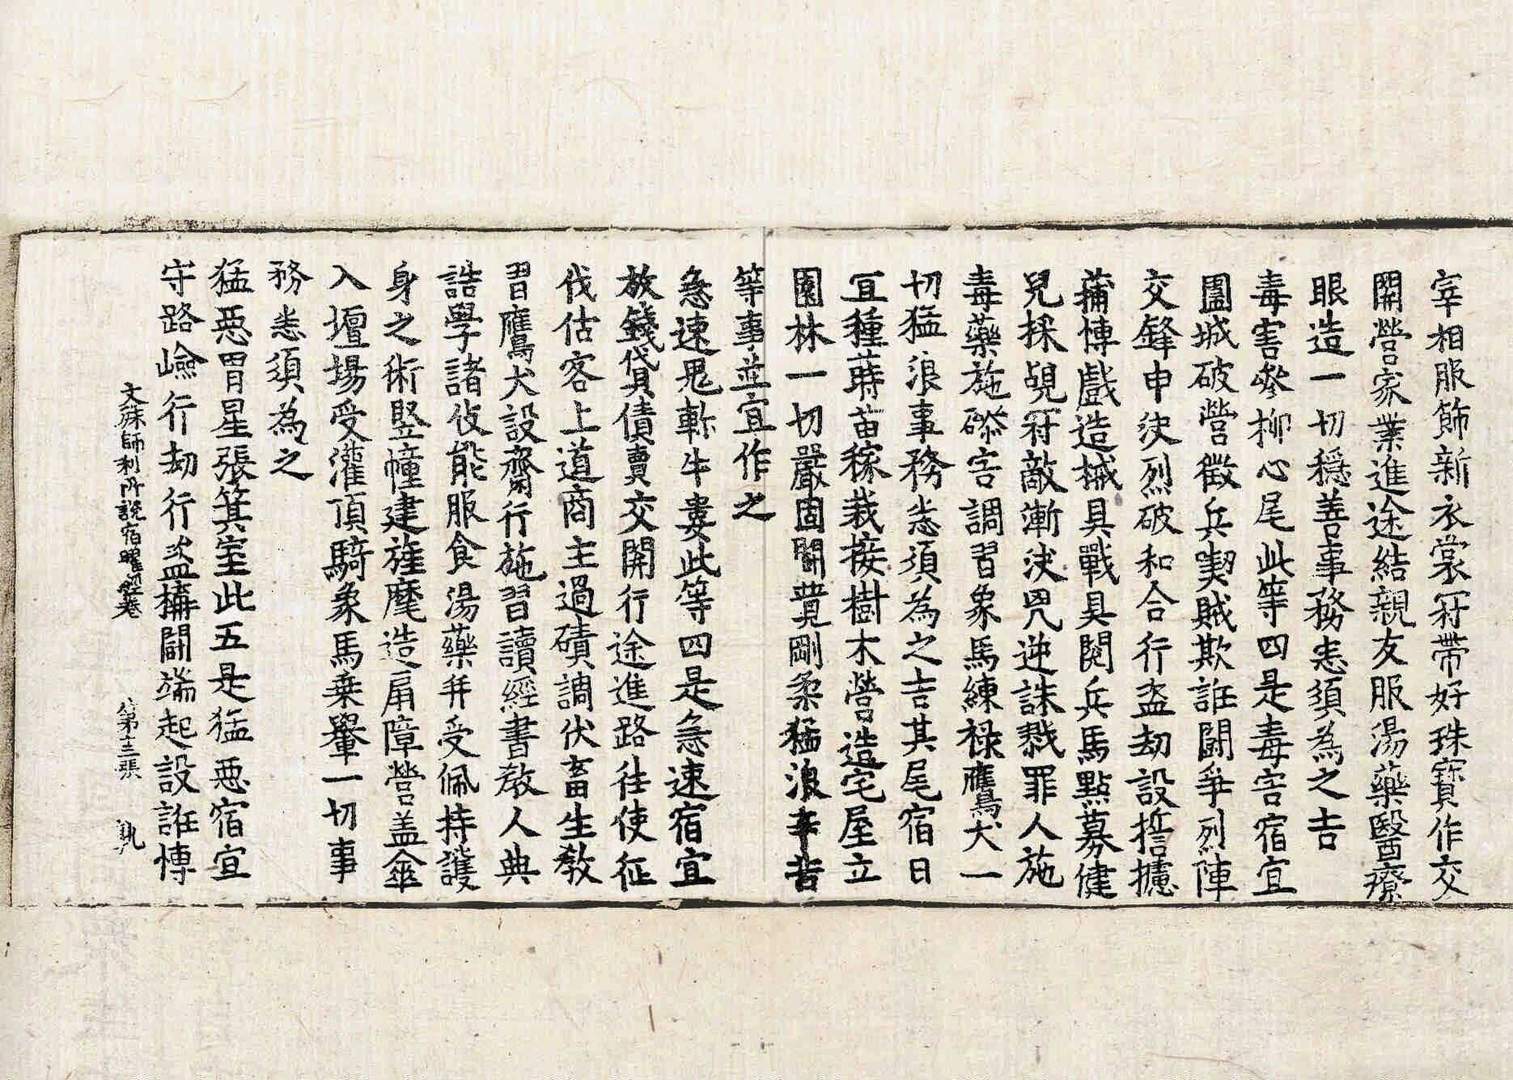 宰相服飾新衣裳冠帶好珠寶作交
開營家業進途結親友服湯藥醫療
眼造一切穩善事務悉須為之吉
毒害嵾柳心尾此等四是毒害宿宜
圍城破營徵兵喫賊欺誑鬪爭烈陣
交鋒申決烈破和合行盜劫設誓攄
蒱博戲造械具戰具閱兵馬點募健
兒採覘冠敵漸決兇逆誅戮罪人施
毒藥施磣害調習象馬練祿鷹犬一
切猛浪事務悉須為之吉其尾宿日
宜種蒔苗稼栽接樹木營造宅屋立
園林一切嚴固閑蕡剛柔猛浪辛苦
等事並宜作之
急速鬼軫牛婁此等四是急速宿宜
放錢貸債賣交開行途進路往使征
伐估客上道商主過磧調伏畜生教
習鷹犬設齋行施習讀經書教人典
誥學諸伎能服食湯藥并受佩持護
身之術竪幢建旌麾造扇障營盖傘
入壇場受灌頂騎象馬乘轝一切事
務悉須為之
猛惡胃星張箕室此五是猛惡宿宜
守路嶮行劫行盜搆鬪端起設誑博
文殊師利所說宿曜經卷 第十三張